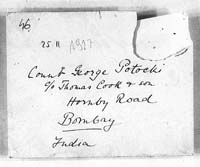 46
25 II 1917
Count George Potocki
c/o Thomas Cook & son
Hornby Road
Bombay
India